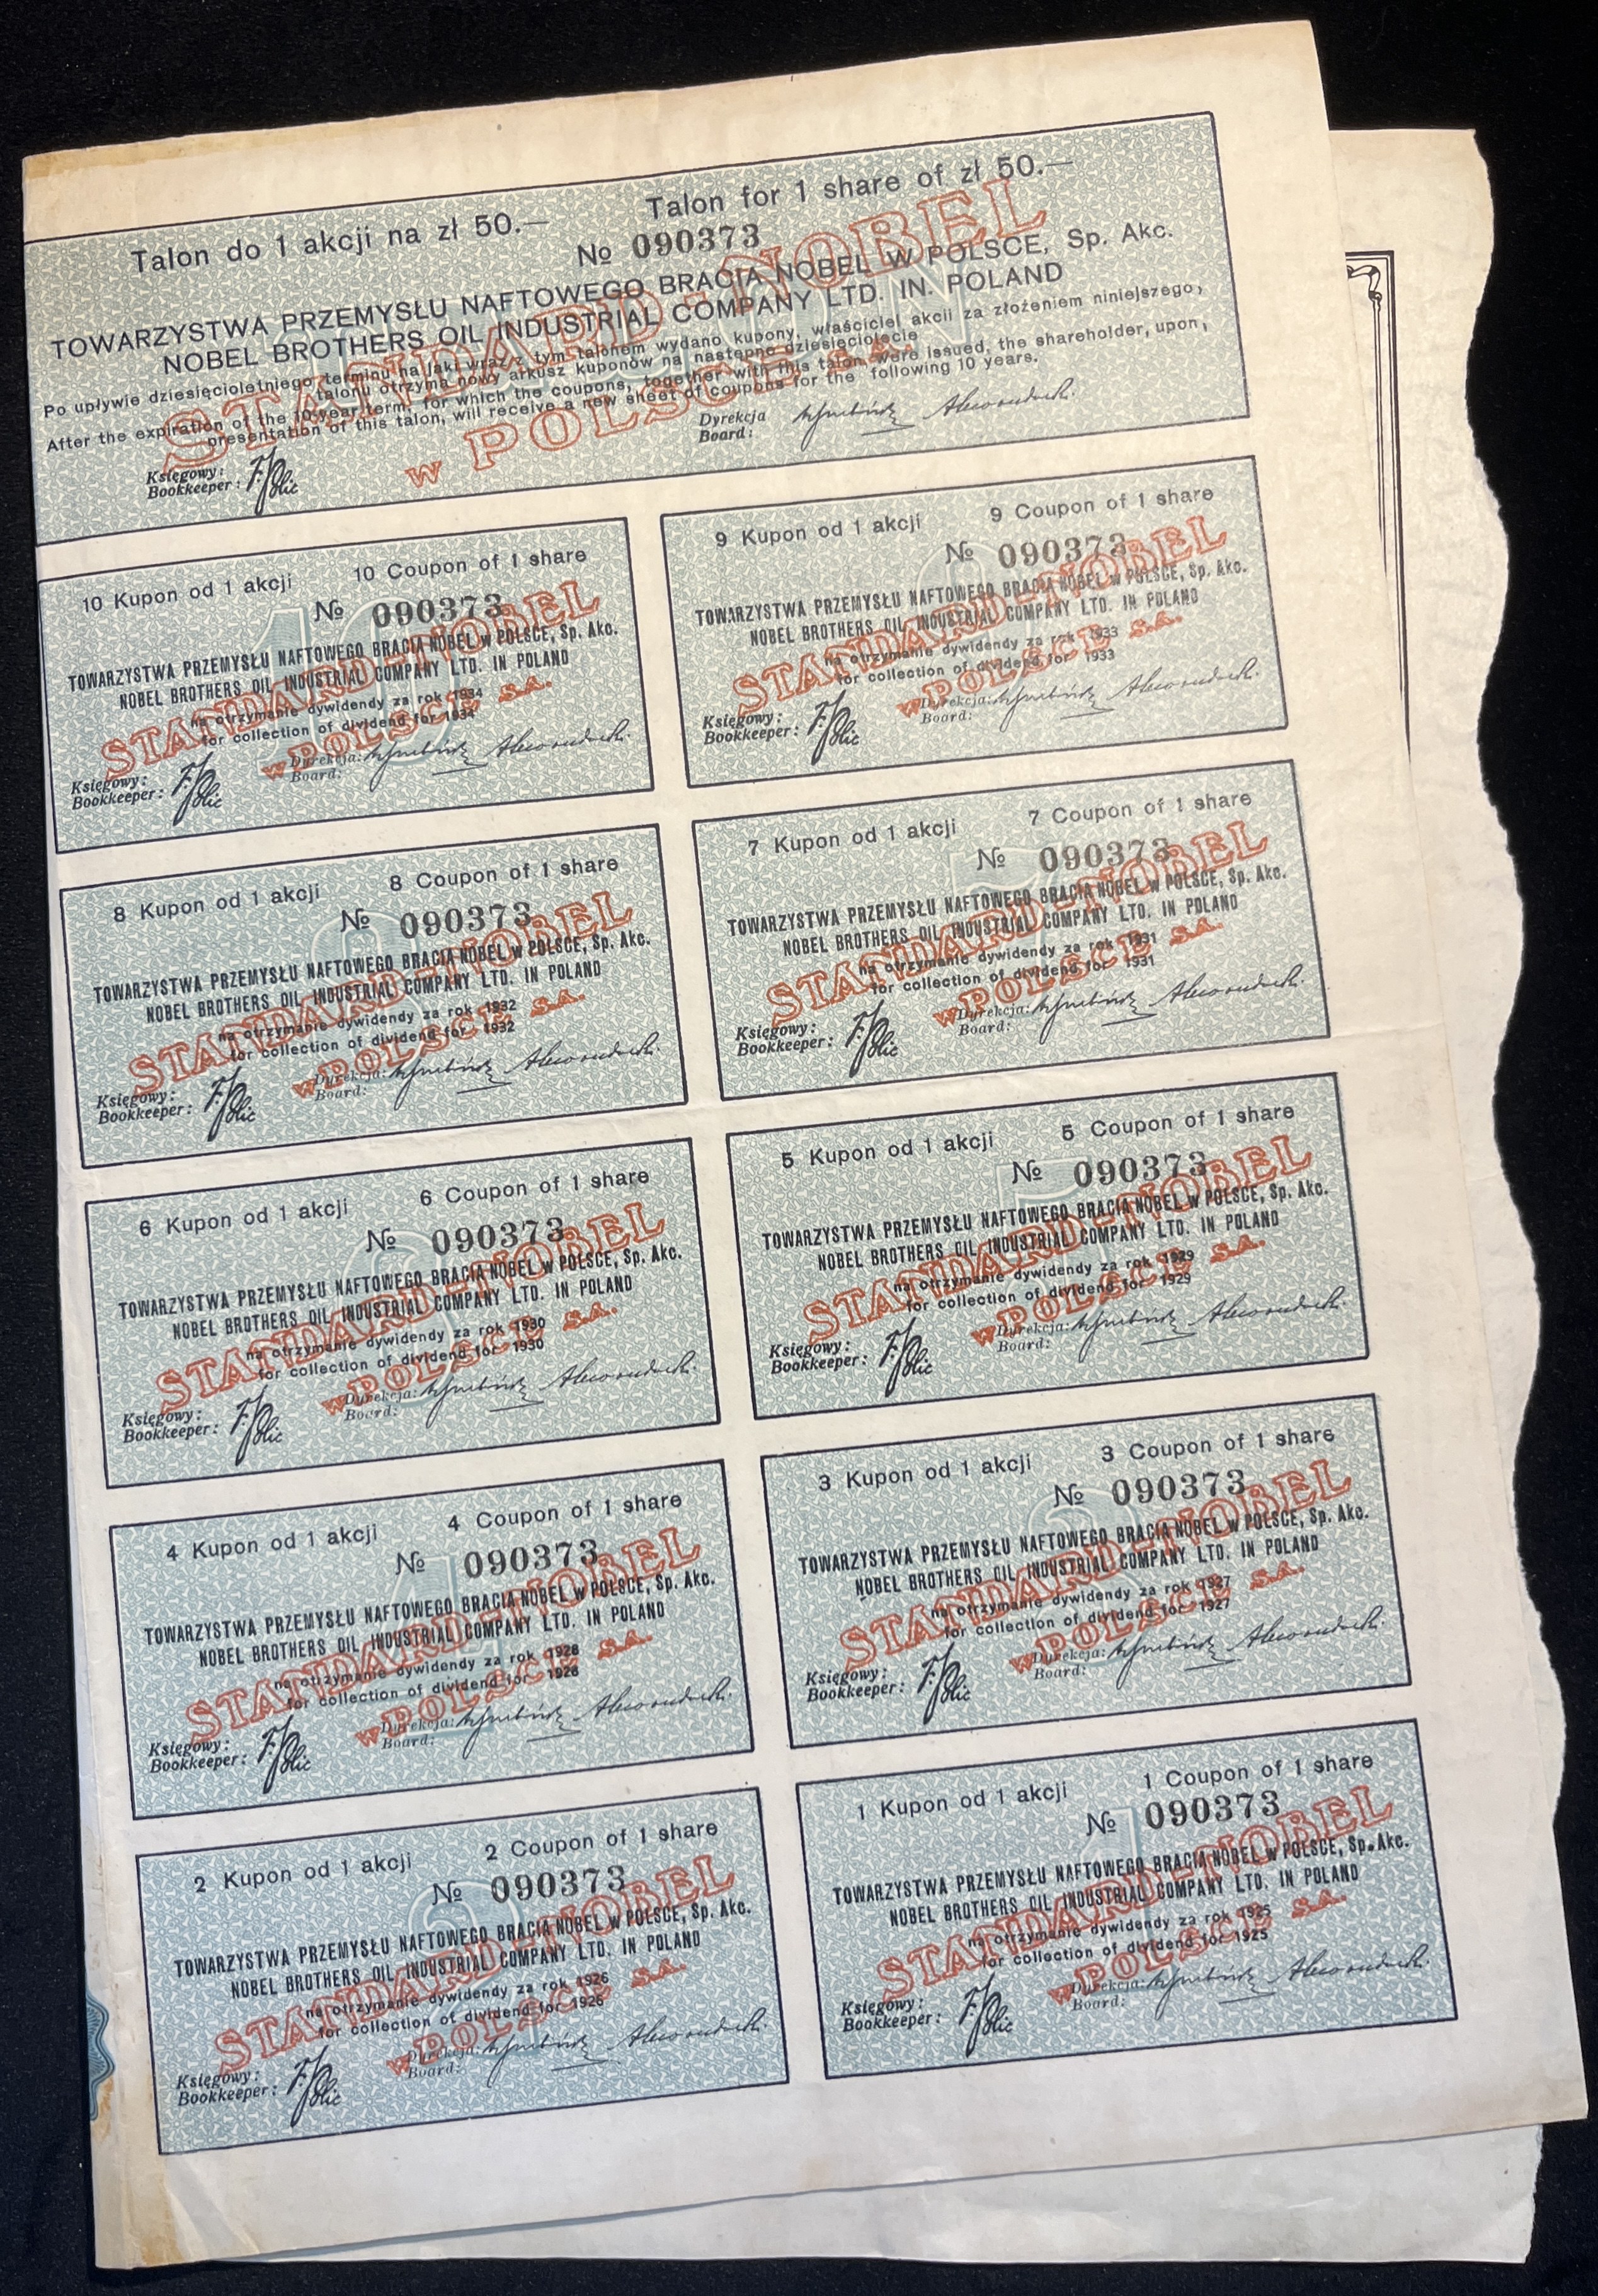 Talon do 1 akcji na zł 50.—
Talon for 1 share of zł 50.—
No 090373
TOWARZYSTWA PRZEMYSŁU NAFTOWEGO BRACIA NOBEL W POLSCE, Sp. Akc.
NOBEL BROTHERS OIL INDUSTRIAL COMPANY LTD. IN. POLAND
Po upływie dziesięcioletniego terminu na jaki wraz z tym talonem wydano kupony, właściciel akcji za złożeniem niniejszego,
talonu otrzyma nowy arkusz kuponów na następne dziesięciolecie
After the expiration of the 10-year term, for which the coupons, together with this talon, were issued, the shareholder, upon,
presentation of this talon, will receive a new sheet of coupons for the following 10 years.
Księgowy:
Bookkeeper:
Dyrekcja
Board:
STANDARD-NOBEL
w POLSCE S.A.
10 Kupon od 1 akcji
10 Coupon of 1 share
No 090373
TOWARZYSTWA PRZEMYSŁU NAFTOWEGO BRACIA NOBEL w POLSCE, Sp. Akc.
NOBEL BROTHERS OIL INDUSTRIAL COMPANY LTD. IN POLAND
na otrzymanie dywidendy za rok 1934
for collection of dividend for 1934
Księgowy:
Bookkeeper:
Dyrekcja:
Board:
STANDARD-NOBEL
w POLSCE S.A.
9 Kupon od 1 akcji
9 Coupon of 1 share
No 090373
TOWARZYSTWA PRZEMYSŁU NAFTOWEGO BRACIA NOBEL w POLSCE, Sp. Akc.
NOBEL BROTHERS OIL INDUSTRIAL COMPANY LTD. IN POLAND
na otrzymanie dywidendy za rok 1933
for collection of dividend for 1933
Księgowy:
Bookkeeper:
Dyrekcja:
Board:
STANDARD-NOBEL
w POLSCE S.A.
8 Kupon od 1 akcji
8 Coupon of 1 share
No 090373
TOWARZYSTWA PRZEMYSŁU NAFTOWEGO BRACIA NOBEL w POLSCE, Sp. Akc.
NOBEL BROTHERS OIL INDUSTRIAL COMPANY LTD. IN POLAND
na otrzymanie dywidendy za rok 1932
for collection of dividend for 1932
Księgowy:
Bookkeeper:
Dyrekcja:
Board:
STANDARD-NOBEL
w POLSCE S.A.
7 Kupon od 1 akcji
7 Coupon of 1 share
No 090373
TOWARZYSTWA PRZEMYSŁU NAFTOWEGO BRACIA NOBEL w POLSCE, Sp. Akc.
NOBEL BROTHERS OIL INDUSTRIAL COMPANY LTD. IN POLAND
na otrzymanie dywidendy za rok 1931
for collection of dividend for 1931
Księgowy:
Bookkeeper:
Dyrekcja:
Board:
STANDARD-NOBEL
w POLSCE S.A.
6 Kupon od 1 akcji
6 Coupon of 1 share
No 090373
TOWARZYSTWA PRZEMYSŁU NAFTOWEGO BRACIA NOBEL w POLSCE, Sp. Akc.
NOBEL BROTHERS OIL INDUSTRIAL COMPANY LTD. IN POLAND
na otrzymanie dywidendy za rok 1930
for collection of dividend for 1930
Księgowy:
Bookkeeper:
Dyrekcja:
Board:
STANDARD-NOBEL
w POLSCE S.A.
5 Kupon od 1 akcji
5 Coupon of 1 share
No 090373
TOWARZYSTWA PRZEMYSŁU NAFTOWEGO BRACIA NOBEL w POLSCE, Sp. Akc.
NOBEL BROTHERS OIL INDUSTRIAL COMPANY LTD. IN POLAND
na otrzymanie dywidendy za rok 1929
for collection of dividend for 1929
Księgowy:
Bookkeeper:
Dyrekcja:
Board:
STANDARD-NOBEL
w POLSCE S.A.
4 Kupon od 1 akcji
4 Coupon of 1 share
No 090373
TOWARZYSTWA PRZEMYSŁU NAFTOWEGO BRACIA NOBEL w POLSCE, Sp. Akc.
NOBEL BROTHERS OIL INDUSTRIAL COMPANY LTD. IN POLAND
na otrzymanie dywidendy za rok 1928
for collection of dividend for 1928
Księgowy:
Bookkeeper:
Dyrekcja:
Board:
STANDARD-NOBEL
w POLSCE S.A.
3 Kupon od 1 akcji
3 Coupon of 1 share
No 090373
TOWARZYSTWA PRZEMYSŁU NAFTOWEGO BRACIA NOBEL w POLSCE, Sp. Akc.
NOBEL BROTHERS OIL INDUSTRIAL COMPANY LTD. IN POLAND
na otrzymanie dywidendy za rok 1927
for collection of dividend for 1927
Księgowy:
Bookkeeper:
Dyrekcja:
Board:
STANDARD-NOBEL
w POLSCE S.A.
2 Kupon od 1 akcji
2 Coupon of 1 share
No 090373
TOWARZYSTWA PRZEMYSŁU NAFTOWEGO BRACIA NOBEL w POLSCE, Sp. Akc.
NOBEL BROTHERS OIL INDUSTRIAL COMPANY LTD. IN POLAND
na otrzymanie dywidendy za rok 1926
for collection of dividend for 1926
Księgowy:
Bookkeeper:
Dyrekcja:
Board:
STANDARD-NOBEL
w POLSCE S.A.
1 Kupon od 1 akcji
1 Coupon of 1 share
No 090373
TOWARZYSTWA PRZEMYSŁU NAFTOWEGO BRACIA NOBEL w POLSCE, Sp. Akc.
NOBEL BROTHERS OIL INDUSTRIAL COMPANY LTD. IN POLAND
na otrzymanie dywidendy za rok 1925
for collection of dividend for 1925
Księgowy:
Bookkeeper:
Dyrekcja:
Board:
STANDARD-NOBEL
w POLSCE S.A.